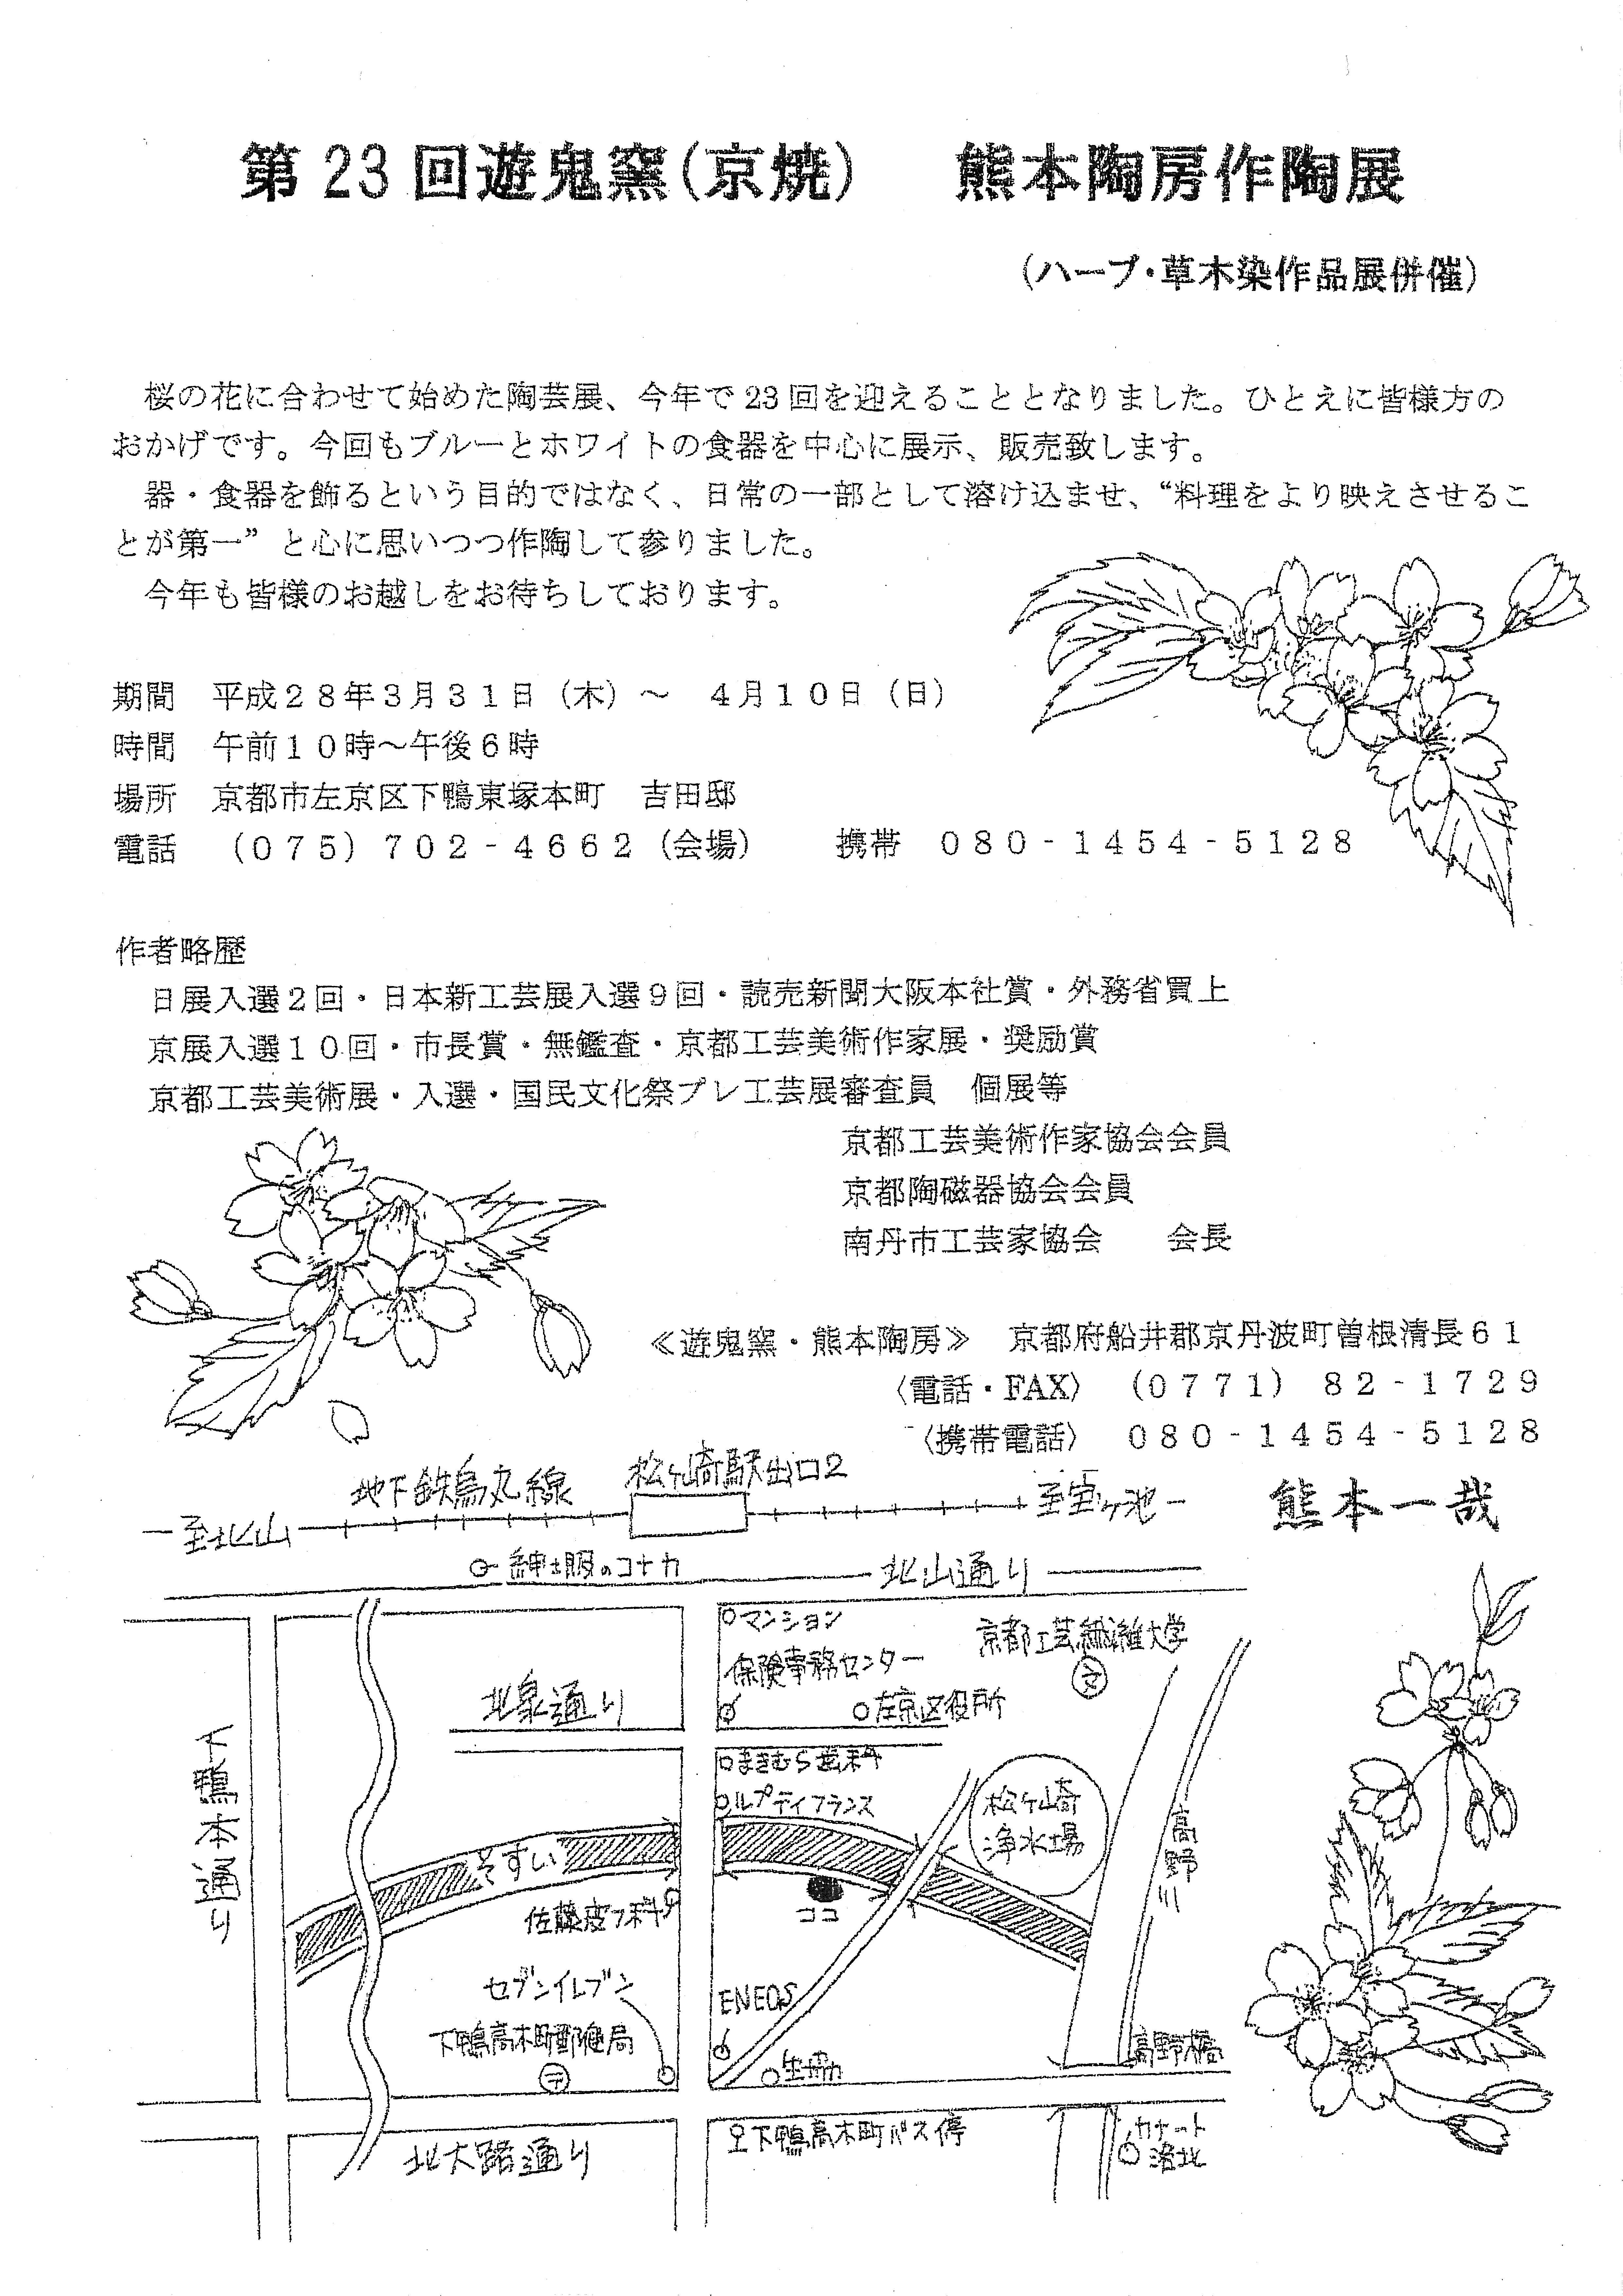 第23回遊鬼窯(京焼)　熊本陶房作陶展
(ハーブ・草木染作品展併催)
桜の花に合わせて始めた陶芸展、今年で23回を迎えることとなりました。ひとえに皆様方の
おかげです。今回もブルーとホワイトの食器を中心に展示、販売致します。
器・食器を飾るという目的ではなく、日常の一部として溶け込ませ、“料理をより映えさせるこ
とが第一”と心に思いつつ作陶して参りました。
今年も皆様のお越しをお待ちしております。
期間　平成２８年３月３１日（木）～　４月１０日（日）
時間　午前１０時～午後６時
場所　京都市左京区下鴨東塚本町　吉田邸
電話　（０７５）７０２‐４６６２（会場）　　携帯　０８０‐１４５４‐５１２８
作者略歴
日展入選２回・日本新工芸展入選９回・読売新聞大阪本社賞・外務省買上
京展入選１０回・市長賞・無鑑査・京都工芸美術作家展・奨励賞
京都工芸美術展・入選・国民文化祭プレ工芸展審査員　個展等
京都工芸美術作家協会会員
京都陶磁器協会会員
南丹市工芸家協会　　会長
≪遊鬼窯・熊本陶房≫　京都府船井郡京丹波町曽根清長６１
〈電話・FAX〉　（０７７１）８２‐１７２９
〈携帯電話〉　０８０‐１４５４‐５１２８
熊本一哉
地下鉄烏丸線
松ヶ崎駅出口2
至北山
至宝ヶ池
紳士服のコナカ
北山通り
マンション
京都工芸繊維大学
文
保険事務センター
北泉通り
左京区役所
まきむら歯科
ルプティフランス
下鴨本通り
松ヶ崎
浄水場
高野川
そすい
佐藤皮フ科
ココ
セブンイレブン
ENEOS
下鴨高木町郵便局
〒
生協
高野橋
下鴨高木町バス停
北大路通り
カナート
洛北